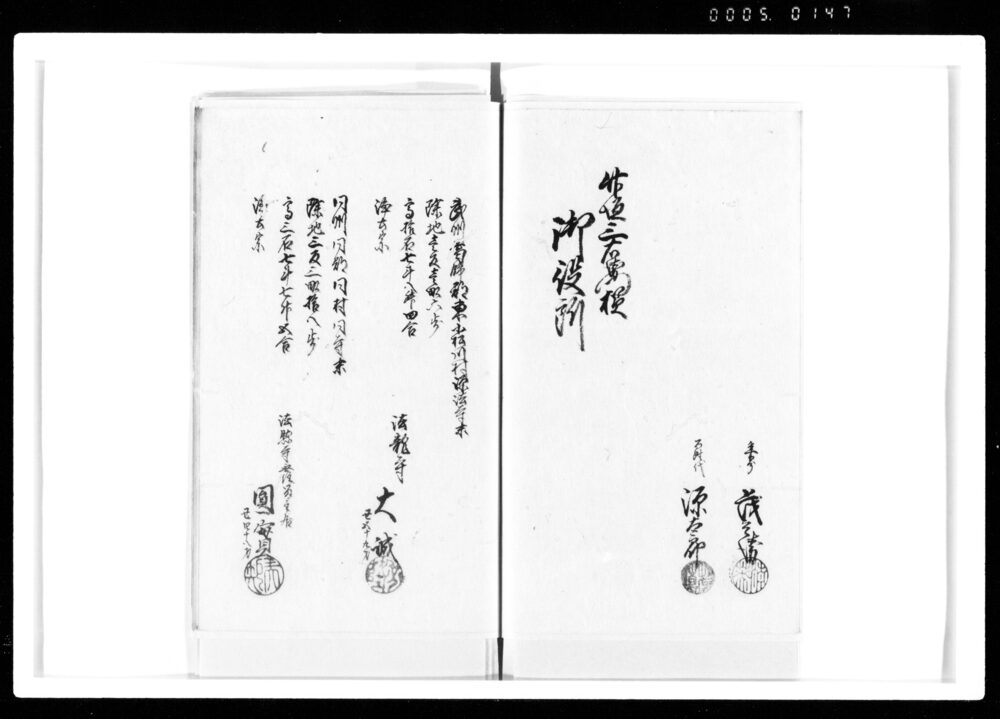 0005. 0147
年寄
茂兵衛
百姓代
源太郎
竹垣三右衛門様
御役所
武州葛飾郡東小松川村源法寺末
除地壱反壱畝六歩
高拾石七斗八升四合
浄土宗
法龍寺
大誠
同州同郡同村同寺末
除地三反三畝拾八歩
高三石七斗七升五合
浄土宗
圓實